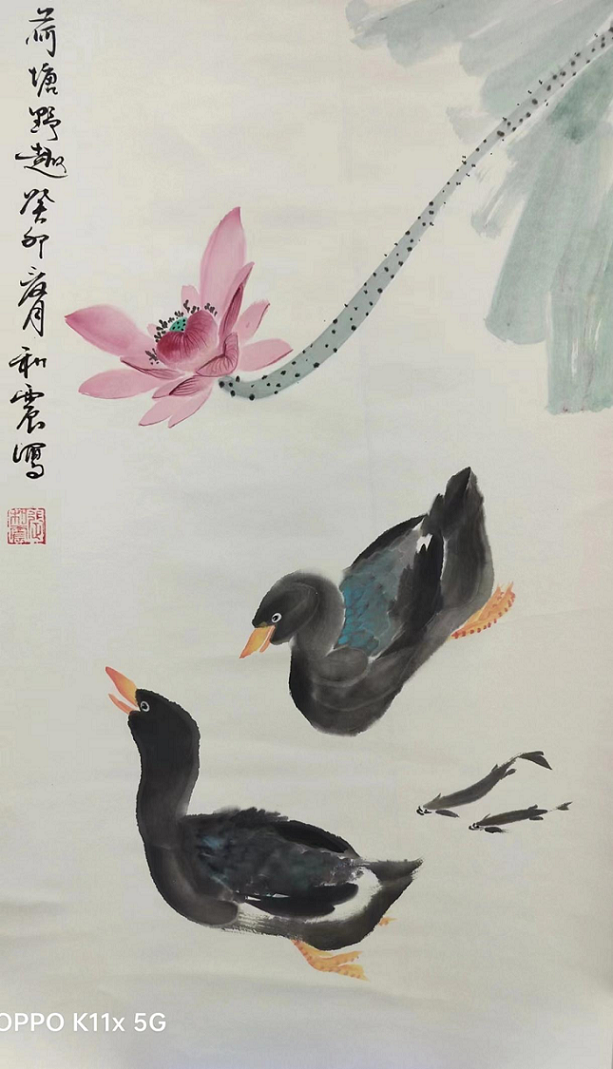 荷塘野趣癸卯夏月和震写
OPPO K11x 5G